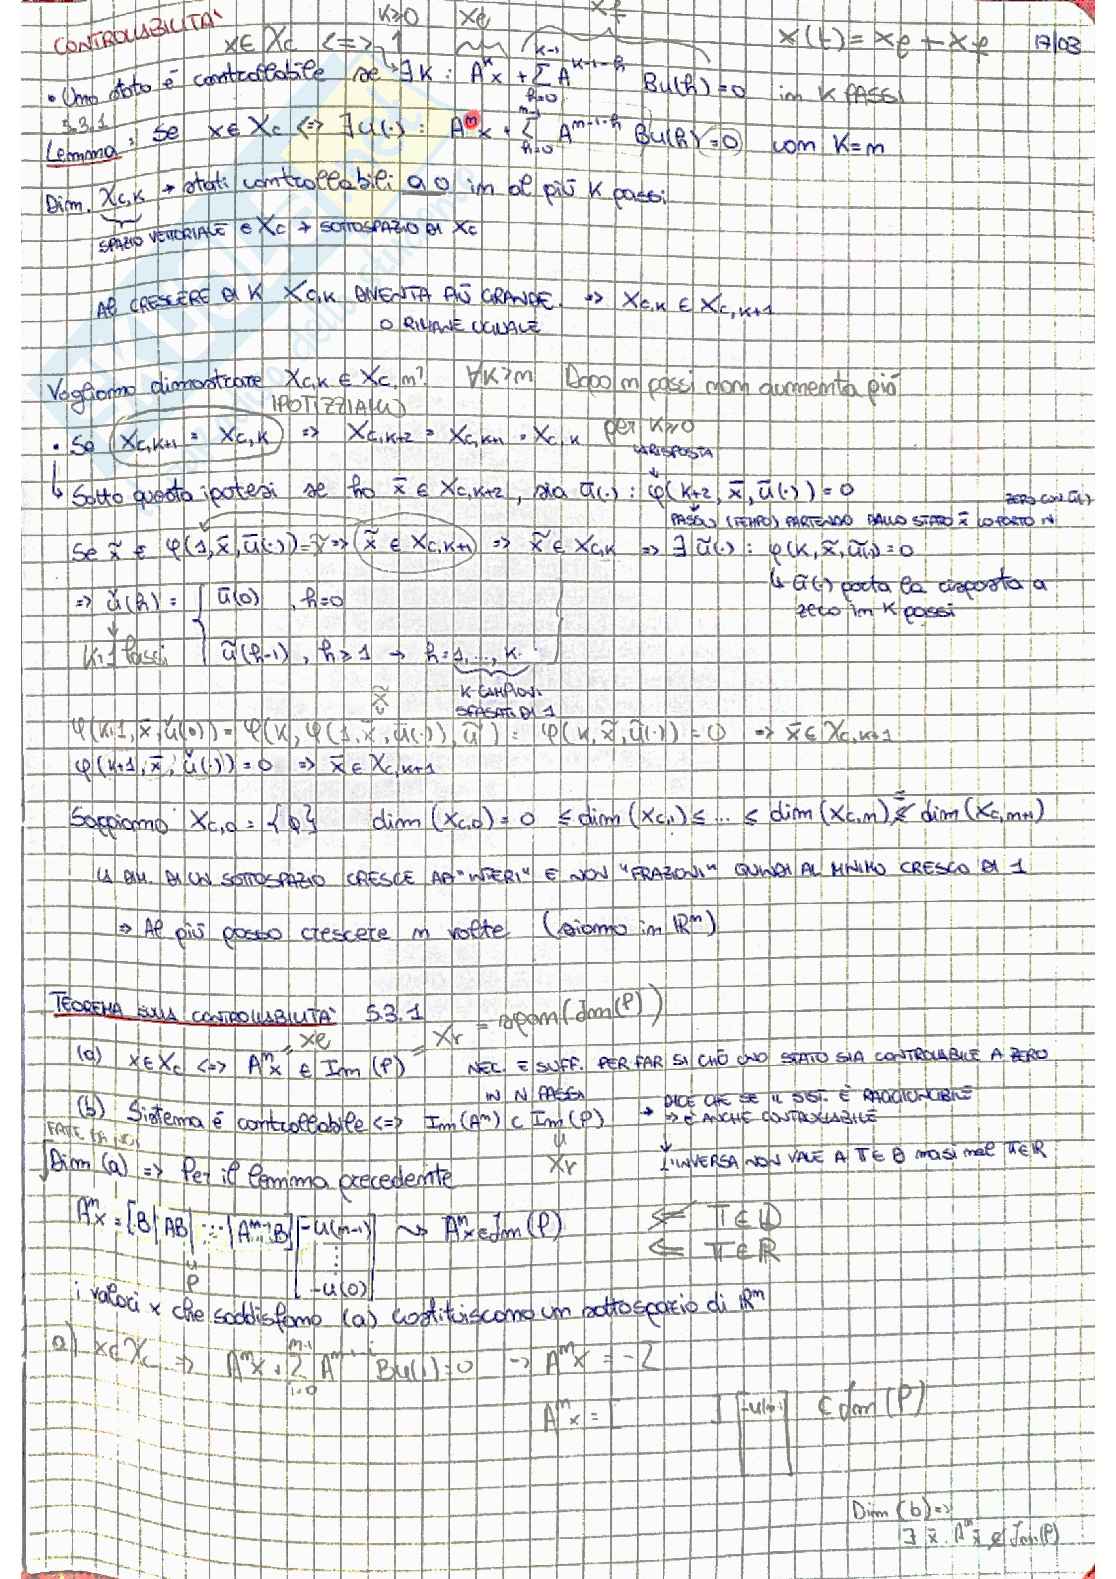 CONTROLLABILITA'
x ∈ Xc <=> K≥0 xℓ xf x(t) = xℓ + xf 17/03
• Uno stato è controllabile se ∃ K : A^K x + Σ_{h=0}^{K-1} A^{K-1-h} Bu(h) = 0 in K PASSI
5.3.1
Lemma : Se x ∈ Xc <=> ∃ u(·) : A^n x + Σ_{h=0}^{n-1} A^{n-1-h} Bu(h) = 0 con K=n
Dim. Xc,k → stati controllabili a 0 in al più K passi
SPAZIO VETTORIALE ∈ Xc → SOTTOSPAZIO DI Xc
AL CRESCERE DI K Xc,k DIVENTA PIÙ GRANDE => Xc,k ∈ Xc,k+1
O RIMANE UGUALE
Vogliamo dimostrare Xc,k ∈ Xc,n? ∀K>n Dopo n passi non aumenta più
IPOTIZZIAMO
• Se Xc,k+1 = Xc,k => Xc,k+2 = Xc,k+1 = Xc,k per K≥0
LA RISPOSTA
↳ Sotto questa ipotesi se ho x̄ ∈ Xc,k+2, sia ū(·) : φ(K+2, x̄, ū(·)) = 0
PASSO (TEMPO) PARTENDO DALLO STATO x̄ LO PORTO IN ZERO CON ū(·)
Se x̃ ∈ φ(1, x̄, ū(·)) = x̃ => x̃ ∈ Xc,k+1 => x̃ ∈ Xc,k => ∃ ũ(·) : φ(K, x̃, ũ(·)) = 0
↳ ũ(·) porta la risposta a
zero in K passi
=> ǔ(h) = { ū(0) , h=0
K+1 Passi ũ(h-1) , h≥1 → h=1,...,K
K CAMPIONI
SFASATI DI 1
x̃
φ(K+1, x̄, ǔ(0)) = φ(K, φ(1, x̄, ū(·)), ũ) = φ(K, x̃, ũ(·)) = 0 => x̄ ∈ Xc,k+1
φ(K+1, x̄, ǔ(·)) = 0 => x̄ ∈ Xc,k+1
Sappiamo Xc,0 = {0} dim(Xc,0) = 0 ≤ dim(Xc,1) ≤ ... ≤ dim(Xc,n) = dim(Xc,n+1)
LA DIM. DI UN SOTTOSPAZIO CRESCE AD "INTERI" E NON "FRAZIONI" QUINDI AL MINIMO CRESCO DI 1
=> Al più posso crescere n volte (siamo in ℝ^n)
TEOREMA SULLA CONTROLLABILITA' 5.3.1
xℓ Xr = span(Im(P))
(a) x ∈ Xc <=> A^n x ∈ Im(P) NEC. E SUFF. PER FAR SI CHE UNO STATO SIA CONTROLLABILE A ZERO
IN N PASSI
(b) Sistema è controllabile <=> Im(A^n) ⊂ Im(P) → DICE CHE SE IL SIST. È RAGGIUNGIBILE
=> È ANCHE CONTROLLABILE
Xr
L'INVERSA NON VALE A T∈ℤ ma si nel T∈ℝ
Dim (a) => Per il lemma precedente
A^n x = [B|AB|...|A^{n-1}B] [-u(n-1) ⋮ -u(0)] ⇝ A^n x ∈ Im(P)
P
T∈
⇐ T∈ℝ
i valori x che soddisfano (a) costituiscono un sottospazio di ℝ^n
a) x∈Xc => A^n x + Σ_{i=0}^{n-1} A^{n-1-i} Bu(i) = 0 → A^n x = -Σ
A^n x = [ ] [-u(n-1)] ∈ Im(P)
Dim (b) =>
∃ x̄ : A^n x̄ ∉ Im(P)